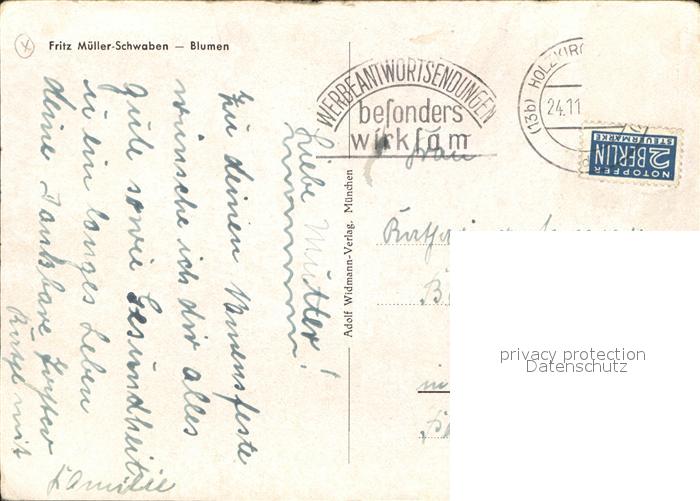 Fritz Müller-Schwaben — Blumen
WERBEANTWORTSENDUNGEN
besonders
wirksam
(13b) HOLZKIRC
24.11
NOTOPFER
2 BERLIN
STEUERMARKE
Adolf Widmann-Verlag, München
Liebe Mutter!
Zu deinem Namensfeste
wünsche ich dir alles
gute sowie Gesundheit
u ein langes Leben
deine dankbare Tochter
mit
Familie
Frau
in
privacy protection
Datenschutz